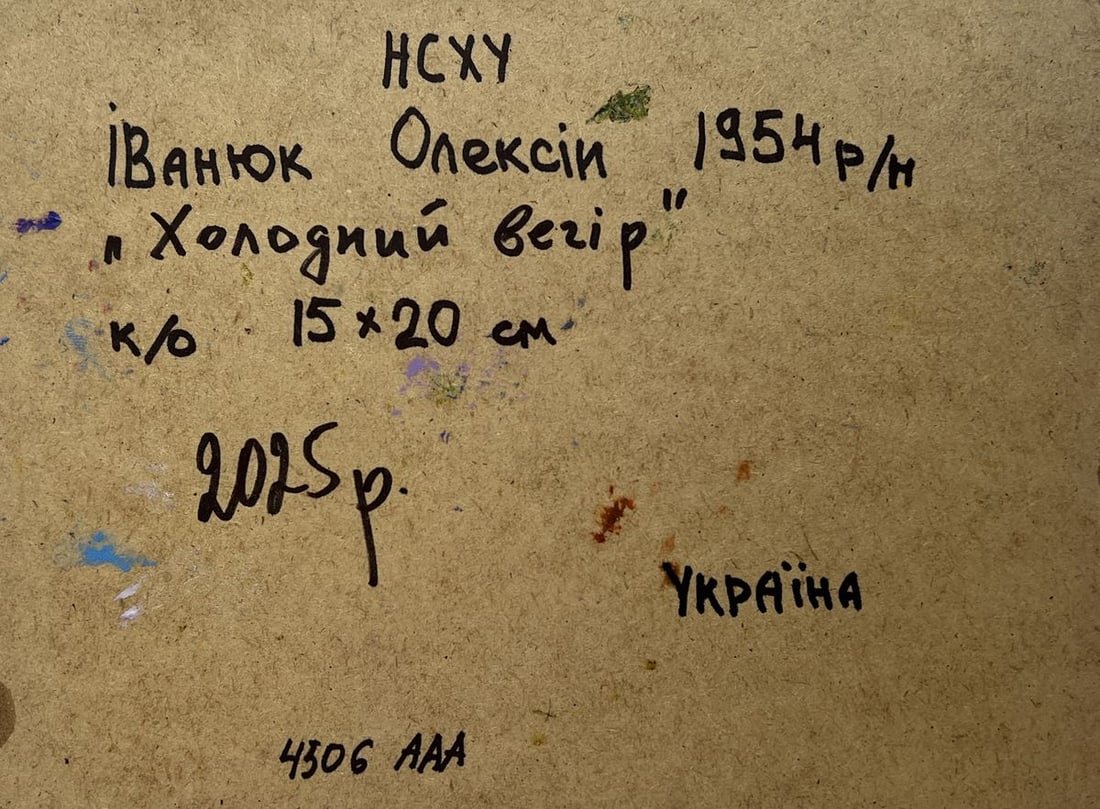 НСХУ
Іванюк Олексій 1954 р/н
„Холодний вечір"
к/о 15×20 см
2025 р.
Україна
4306 ААА